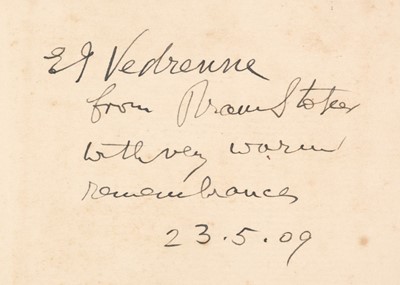 E J Vedrenne
from Bram Stoker
with very warm
remembrances
23.5.09